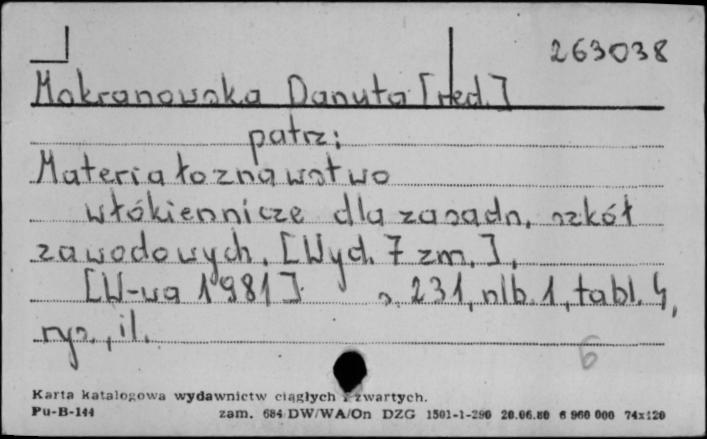 263038
Mokranowska Danuta [red.]
patrz:
Materiałoznawstwo
włókiennicze dla zasadn. szkół
zawodowych. [Wyd. 7 zm.],
[W-wa 1981] s. 231, nlb. 1, tabl. 4,
rys., il.
6
Karta katalogowa wydawnictw ciągłych i zwartych.
Pu-B-144 zam. 684 DW/WA/On DZG 1501-1-290 20.06.80 6 960 000 74x120